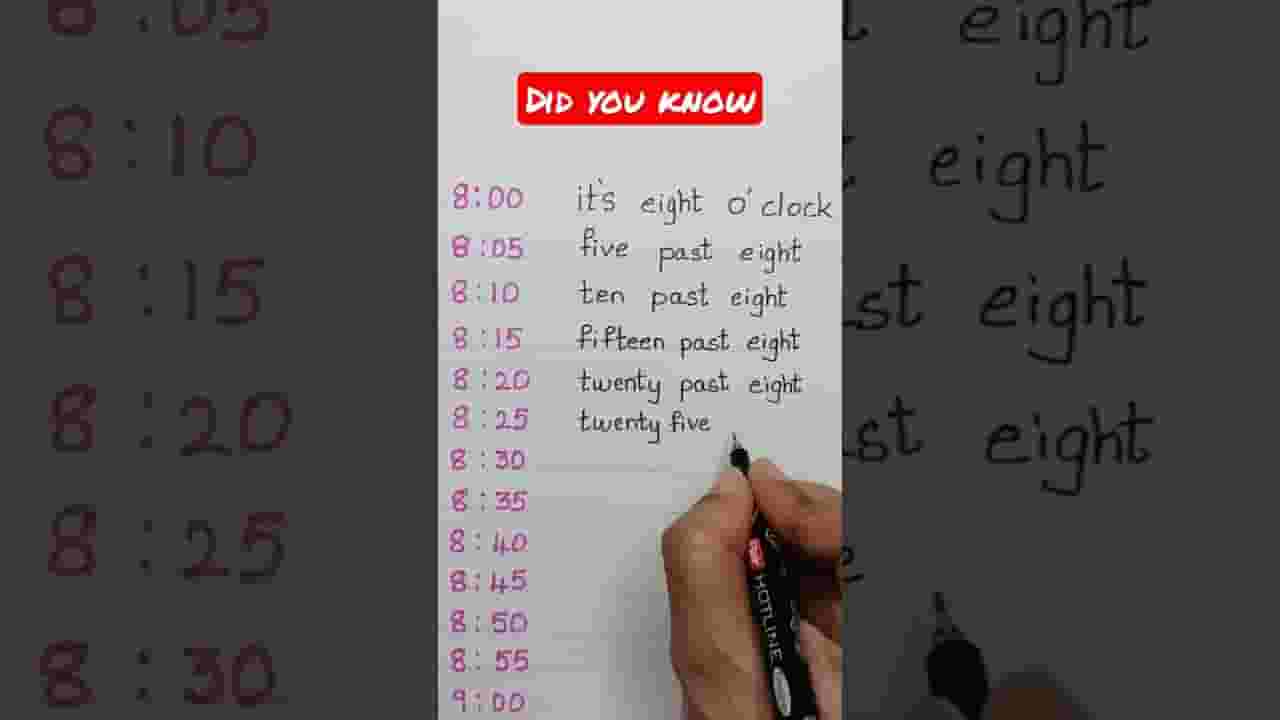 DID YOU KNOW
8:00 it's eight o'clock
8:05 five past eight
8:10 ten past eight
8:15 fifteen past eight
8:20 twenty past eight
8:25 twenty five
8:30
8:35
8:40
8:45
8:50
8:55
9:00
HOTLINE